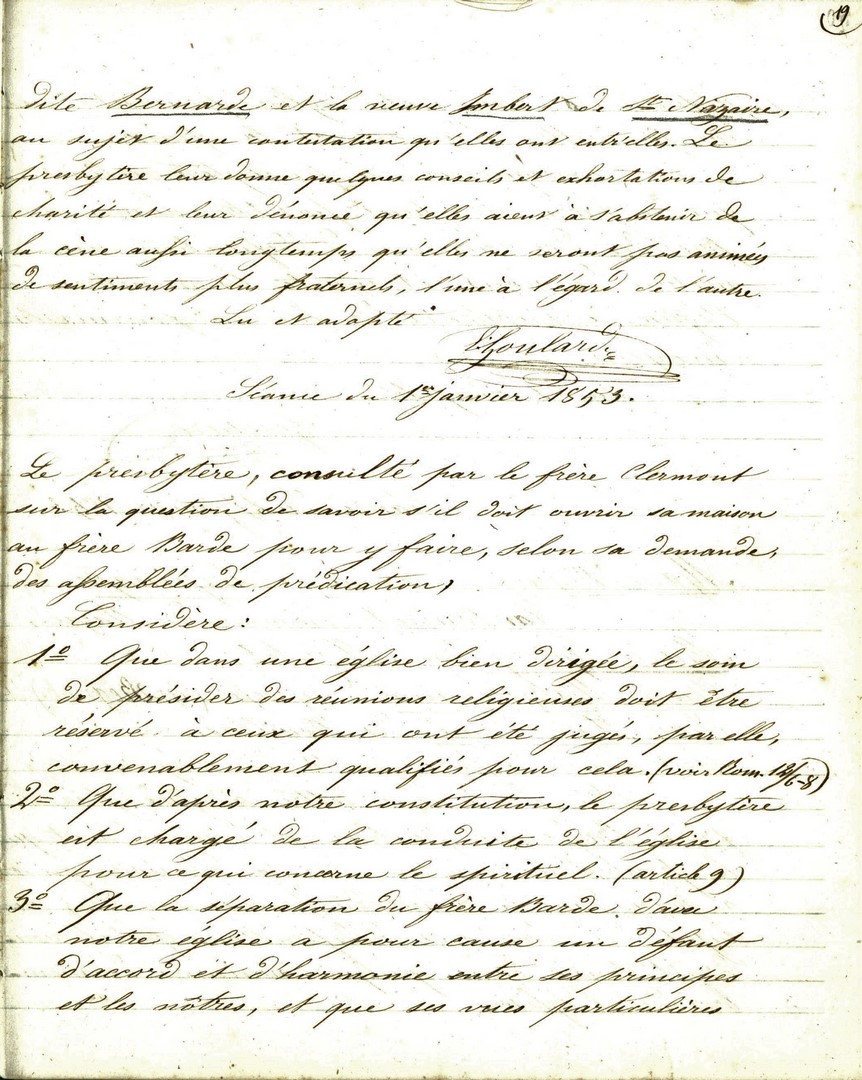 19
dite Bernarde et la veuve Imbert de St Nazaire,
au sujet d'une contestation qu'elles ont entr'elles. Le
presbytère leur donne quelques conseils et exhortations de
charité et leur dénonce qu'elles aient à s'abstenir de
la cène aussi longtemps qu'elles ne seront pas animées
de sentiments plus fraternels, l'une à l'égard de l'autre.
Lu et adopté
Séance du 1er janvier 1853.
Le presbytère, consulté par le frère Clermont
sur la question de savoir s'il doit ouvrir sa maison
au frère Barde pour y faire, selon sa demande,
des assemblées de prédication,
Considère :
1º Que dans une église bien dirigée, le soin
de présider des réunions religieuses doit être
réservé à ceux qui ont été jugés, par elle,
convenablement qualifiés pour cela. (voir Rom. 12/6-8)
2º Que d'après notre constitution, le presbytère
est chargé de la conduite de l'église
pour ce qui concerne le spirituel. (article 9)
3º Que la séparation du frère Barde d'avec
notre église a pour cause un défaut
d'accord et d'harmonie entre ses principes
et les nôtres, et que ses vues particulières